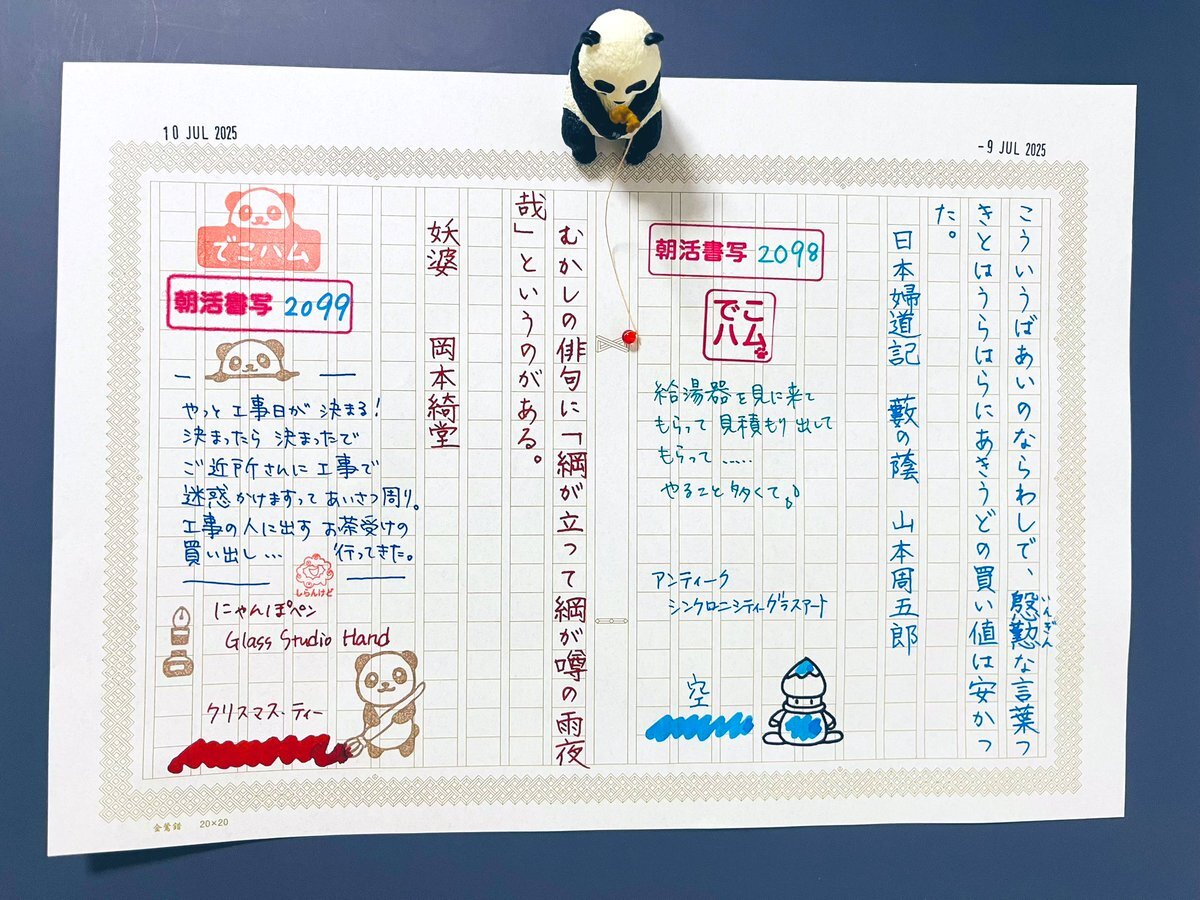 -9 JUL 2025
こういうばあいのならわしで、慇懃な言葉つ
いんぎん
きとはうらはらにあきうどの買い値は安かっ
た。
日本婦道記 藪の蔭 山本周五郎
朝活書写 2098
でこ
ハム
給湯器を見に来て
もらって見積もり出して
もらって……
やること多くて。
アンティーク
シンクロニシティーグラスアート
空
10 JUL 2025
むかしの俳句に「綱が立って綱が噂の雨夜
哉」というのがある。
妖婆 岡本綺堂
でこハム
朝活書写 2099
やっと工事日が決まる!
決まったら決まったで
ご近所さんに工事で
迷惑かけますってあいさつ周り。
工事の人に出すお茶受けの
買い出し… 行ってきた。
しらんけど
にゃんぽペン
Glass Studio Hand
クリスマス・ティー
20×20